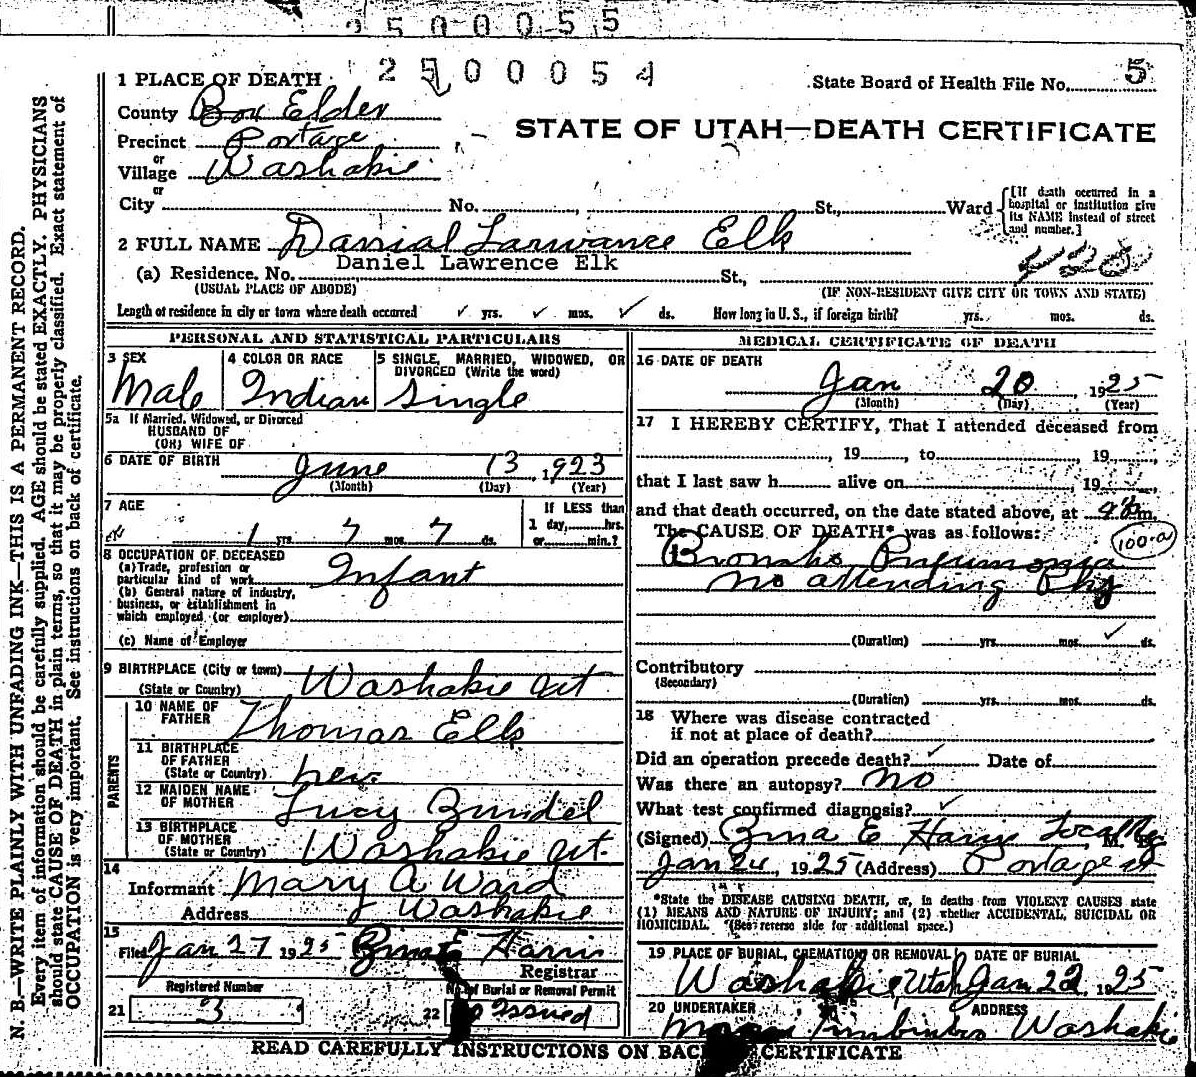 2500055
2500054
1 PLACE OF DEATH
State Board of Health File No. 5
County Box Elder
Precinct Portage
or
Village Washakie
or
City No. St., Ward
STATE OF UTAH—DEATH CERTIFICATE
[If death occurred in a
hospital or institution give
its NAME instead of street
and number.]
2 FULL NAME Danial Larwance Elk
Daniel Lawrence Elk
(a) Residence. No. St.,
(USUAL PLACE OF ABODE)
(IF NON-RESIDENT GIVE CITY OR TOWN AND STATE)
Length of residence in city or town where death occurred ✓ yrs. ✓ mos. ✓ ds. How long in U. S., if foreign birth? yrs. mos. ds.
PERSONAL AND STATISTICAL PARTICULARS
3 SEX
Male
4 COLOR OR RACE
Indian
5 SINGLE, MARRIED, WIDOWED, OR
DIVORCED (Write the word)
Single
5a If Married, Widowed, or Divorced
HUSBAND OF
(OR) WIFE OF
6 DATE OF BIRTH June 13, 1923
(Month) (Day) (Year)
7 AGE
1 yrs. 7 mos. 7 ds.
If LESS than
1 day, hrs.
or min.?
8 OCCUPATION OF DECEASED
(a) Trade, profession or
particular kind of work Infant
(b) General nature of industry,
business, or establishment in
which employed (or employer)
(c) Name of Employer
9 BIRTHPLACE (City or town)
(State or Country) Washakie Ut
PARENTS
10 NAME OF
FATHER Thomas Elk
11 BIRTHPLACE
OF FATHER
(State or Country) Nev.
12 MAIDEN NAME
OF MOTHER Lucy Bundel
13 BIRTHPLACE
OF MOTHER
(State or Country) Washakie Ut.
14
Informant Mary A Ward
Address Washakie
15
Filed Jan 27 1925 Erma E Harris
Registrar
Registered Number
21 3
No. of Burial or Removal Permit
22 Issued
MEDICAL CERTIFICATE OF DEATH
16 DATE OF DEATH
Jan 20 1925
(Month) (Day) (Year)
17 I HEREBY CERTIFY, That I attended deceased from
, 19 , to , 19
that I last saw h alive on , 19
and that death occurred, on the date stated above, at m.
The CAUSE OF DEATH* was as follows:
100-a
Broncho Pneumonia
no attending Phy
(Duration) yrs. mos. ✓ ds.
Contributory
(Secondary)
(Duration) yrs. mos. ds.
18 Where was disease contracted
if not at place of death?
Did an operation precede death? ✓ Date of
Was there an autopsy? No
What test confirmed diagnosis? ✓
(Signed) Erma E Harris Local Reg, M. D.
Jan 24, 1925 (Address) Portage Ut
*State the DISEASE CAUSING DEATH, or, in deaths from VIOLENT CAUSES state
(1) MEANS AND NATURE OF INJURY; and (2) whether ACCIDENTAL, SUICIDAL OR
HOMICIDAL. (See reverse side for additional space.)
19 PLACE OF BURIAL, CREMATION, OR REMOVAL DATE OF BURIAL
Washakie, Utah Jan 22, 1925
20 UNDERTAKER ADDRESS
Washakie
READ CAREFULLY INSTRUCTIONS ON BACK CERTIFICATE
N. B.—WRITE PLAINLY WITH UNFADING INK—THIS IS A PERMANENT RECORD.
Every item of information should be carefully supplied. AGE should be stated EXACTLY. PHYSICIANS
should state CAUSE OF DEATH in plain terms, so that it may be properly classified. Exact statement of
OCCUPATION is very important. See instructions on back of certificate.